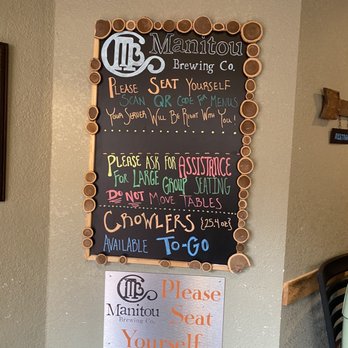 Manitou
Brewing Co.
Please Seat Yourself
Scan QR Code For Menus
Your Server Will Be Right With You!
Please ask for Assistance
for Large Group Seating
Do Not Move Tables
Crowlers {25.4 oz}
Available To-Go
Manitou
Brewing Co.
Please
Seat
Yourself